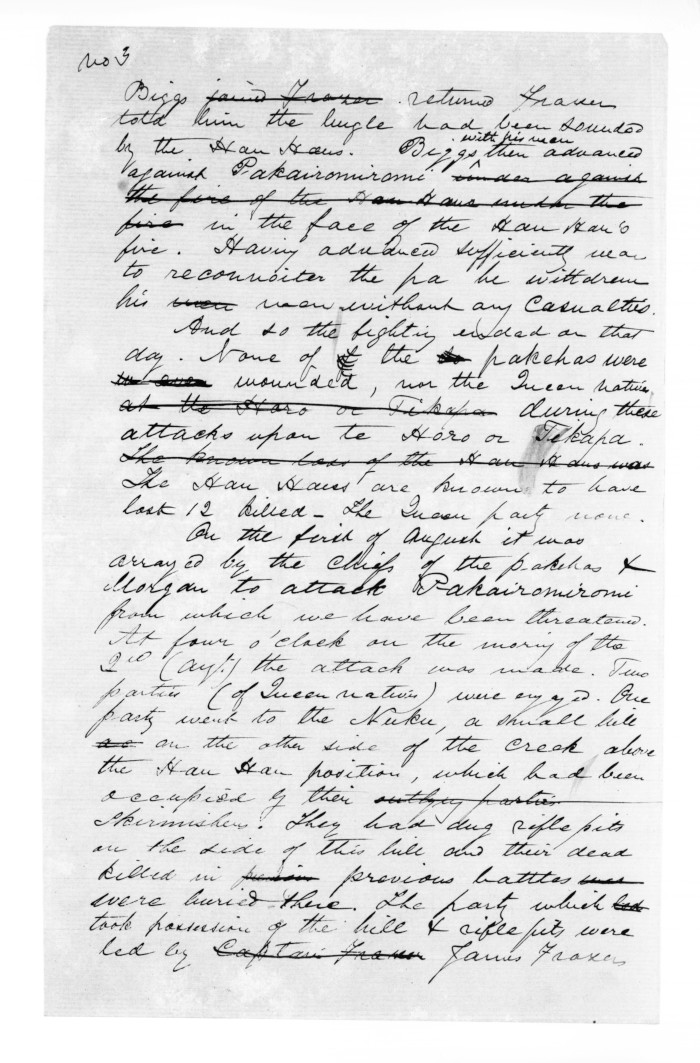 no 3
Biggs joined Fraser returned Fraser
told him the bugle had been sounded
by the Hau Haus. Biggs, with his men then advanced
against Pakairomiromi under against
the fire of the Hau Haus under the
fire in the face of the Hau Hau's
fire. Having advanced sufficiently near
to reconnoiter the pa he withdrew
his men men without any casualties.
And so the fighting ended on that
day. None of the to pakehas were
or even wounded, nor the Queen natives
at the Horo or Tikapa during these
attacks upon te Horo or Tikapa.
The known loss of the Hau Haus was
The Hau Haus are known to have
lost 12 killed – The Queen party none.
On the first of August it was
arrayed by the chiefs of the pakehas &
Morgan to attack Pakairomiromi
from which we have been threatened.
At four o'clock on the moring of the
2nd (Augt.) the attack was made. Two
parties (of Queen natives) were engaged. One
party went to the Nuku, a small hill
as on the other side of the creek above
the Hau Hau position, which had been
occupied by their outlying parties
skirmishers. They had dug rifle pits
on the side of this hill and their dead
killed in previous battles were
were buried there. The party which led
took possession of the hill & rifle pits were
led by Captain Fraser James Fraser